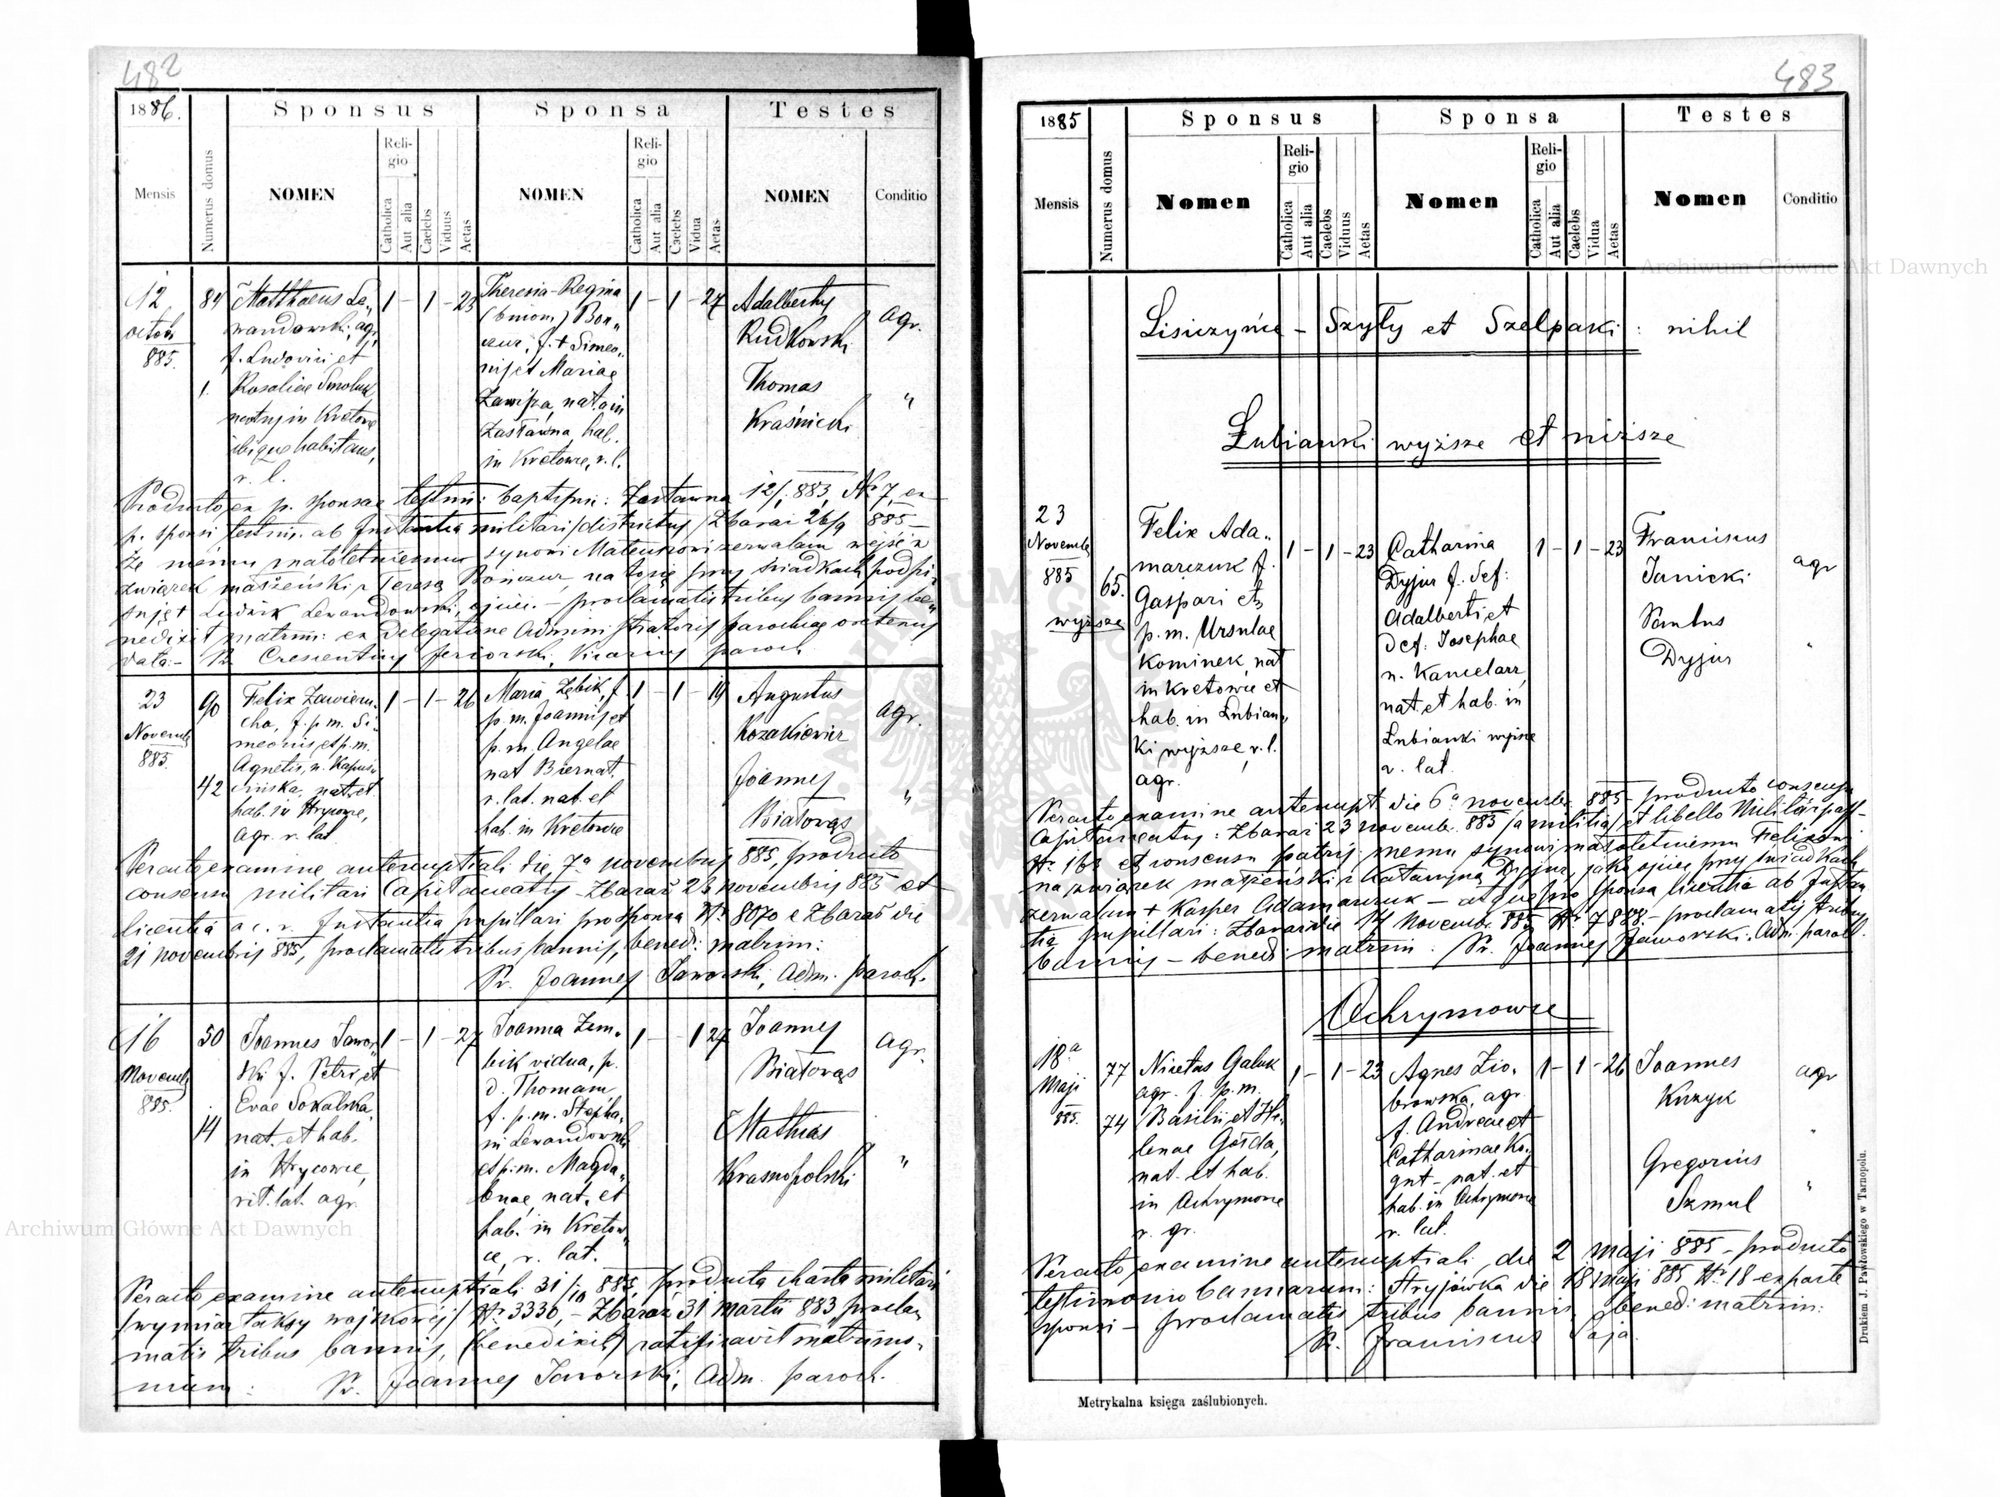 482
1886.
Sponsus
Sponsa
Testes
Mensis
Numerus domus
NOMEN
Religio
Catholica
Aut alia
Caelebs
Viduus
Aetas
NOMEN
Religio
Catholica
Aut alia
Caelebs
Vidua
Aetas
NOMEN
Conditio
12
octob
885.
84
1.
Matthaeus Le-
wandowski, agr,
f. Ludovici et
Rosaliae
natus in Kretowce
ibique habitans,
r. l.
1 - 1 - 23
Theresia-Regina
(binom.) Boń-
czur, f. + Simeo-
nis et Mariae
nata in
Zastawna, hab.
in Kretowce, r. l.
1 - 1 - 27
Adalbertus
Rudkowski
Thomas
Kraśnicki
agr.
"
Producto ex p. sponsae testim: baptism: Zastawna 12/1 883, Nr 7, ex
p. sponsi testim. ab Instantia militari districtus Zbaraż 26/9 885 -
Że niemu małoletniemu synowi Mateuszowi zezwalam wejść w
związek małżeński z Teresą Bończur, na to się przy świadkach podpi-
suję + Ludwik Lewandowski, ojciec. - proclamatis tribus bannis be-
nedixit matrim: ex delegatione Administratoris parochiae
data: - Pr. Crescentius Jeziorski, Vicarius paroch
23
Novemb
885.
90
42
Felix Zawieru-
cha, f. p. m. Si-
meonis et p. m.
Agnetis, n. Kapuś-
cińska, nat. et
hab. in Hrycowce,
agr. r. lat
1 - 1 - 26
Maria Zębik, f.
p. m. Joannis et
p. m. Angelae
nat Biernat.
r. lat. nat. et
hab. in Kretowce
1 - 1 - 19
Augustus
Kozakiewicz
Joannes
Białowąs
agr.
"
Peracto examine antenuptiali die 7a novembris 885, producto
consensu militari Capitaneatus Zbaraż 23 novembris 885 et
licentia a c. r. Instantia pupillari pro sponsa Nr 8070 e Zbaraż die
21 novembris 885, proclamatis tribus bannis, bened: matrim:
Pr. Joannes Jaworski, Adm. paroch.
16
Novemb
885.
50
14
Joannes Jawor-
ski f. Petri et
Evae Sokalska,
nat. et hab.
in Hrycowce,
rit. lat. agr.
1 - 1 - 27
Joanna Zem-
bik vidua, p.
d. Thomam
f. p. m. Stepha-
ni Lewandowski
et p. m. Magda-
lenae, nat. et
hab. in Kretow-
ce, r. lat.
1 - 1 27
Joannes
Białowąs
Mathias
Krasnopolski
agr.
"
Peracto examine antenuptiali 31/10 885, producta charta militari
(wymiar taksy wojskowej) Nr 3330, - Zbaraż 31 Martii 883 procla-
matis tribus bannis, (benedixit) ratificavit matrimo-
nium: Pr. Joannes Jaworski, Adm. paroch.
483
1885
Sponsus
Sponsa
Testes
Mensis
Numerus domus
Nomen
Religio
Catholica
Aut alia
Caelebs
Viduus
Aetas
Nomen
Religio
Catholica
Aut alia
Caelebs
Vidua
Aetas
Nomen
Conditio
Lisiczyńce - Szyły et Szelpaki: nihil
Łubianki wyższe et niższe
23
Novemb
885
wyższe
65.
Felix Ada-
marczuk f.
Gaspari et
p. m. Ursulae
Kominek, nat
in Kretowce et
hab. in Łubian-
ki wyższe, r. l.
agr.
1 - 1 - 23
Catharina
Dyjur f. def:
Adalberti et
def. Josephae
n. Kancelarz,
nat. et hab. in
Łubianki wyższe
r. lat.
1 - 1 - 23
Franciscus
Janicki
Paulus
Dyjur
agr
"
Peracto examine antenupt. die 6a novemb: 885 - producto consensu
Capitaneatus: Zbaraż 23 novemb. 885 (a militia) et libello Militärpass -
Nr 163 et consensu patris: memu synowi małoletniemu Felixowi
na związek małżeński z Katarzyną Dyjur, jako ojciec przy świadkach
zezwalam + Kasper Adamarczuk - atque pro sponsa licentia ab Instan-
tia pupillari: Zbaraż die 14 Novemb. 885 Nr 7888 - proclamatis tribus
bannis - bened: matrim. Pr. Joannes Jaworski, Adm. paroch.
Ochrymowce
18a
Maji
885.
77
74
Nicetas Galuk
agr. f. p. m.
Basilii et He-
lenae Gołda,
nat. et hab.
in Ochrymowce
r. gr.
1 - 1 - 23
Agnes Zio-
browska, agr.
f. Andreae et
Catharinae Ko-
gut - nat. et
hab. in Ochrymowce
r. lat.
1 - 1 - 26
Joannes
Kuzyk
Gregorius
Szmul
agr
"
Peracto examine antenuptiali die 2 Maji 885 - producto
testimonio bannorum: Hryjówka die 18 maji 885 Nr 18 ex parte
sponsi - proclamatis tribus bannis, bened: matrim:
Pr. Franciscus Saja.
Metrykalna księga zaślubionych.
Drukiem J. Pawłowskiego w Tarnopolu.
Archiwum Główne Akt Dawnych
Archiwum Główne Akt Dawnych